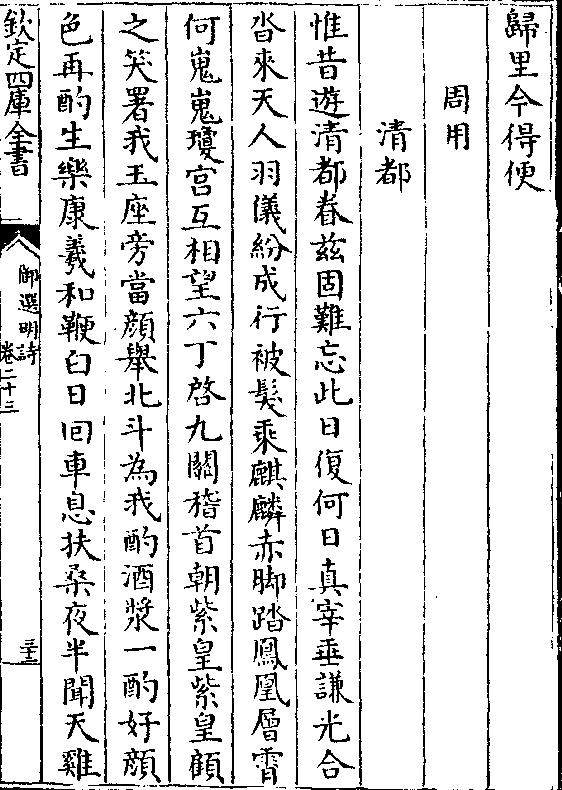 歸里令得便
周用
清都
惟昔遊清都眷兹固難忘此日復何日真宰垂謙光合
沓來天人羽儀紛成行被髮乘麒麟赤脚踏鳳凰層霄
何嵬嵬瓊宮互相望六丁啓九關稽首朝紫皇紫皇顧
之笑署我玉座旁當顏舉北斗為我酌酒漿一酌好顏
色再酌生樂康羲和鞭白日回車息扶桑夜半聞天雞
欽定四庫全書
御選明詩
卷二十三
三十二